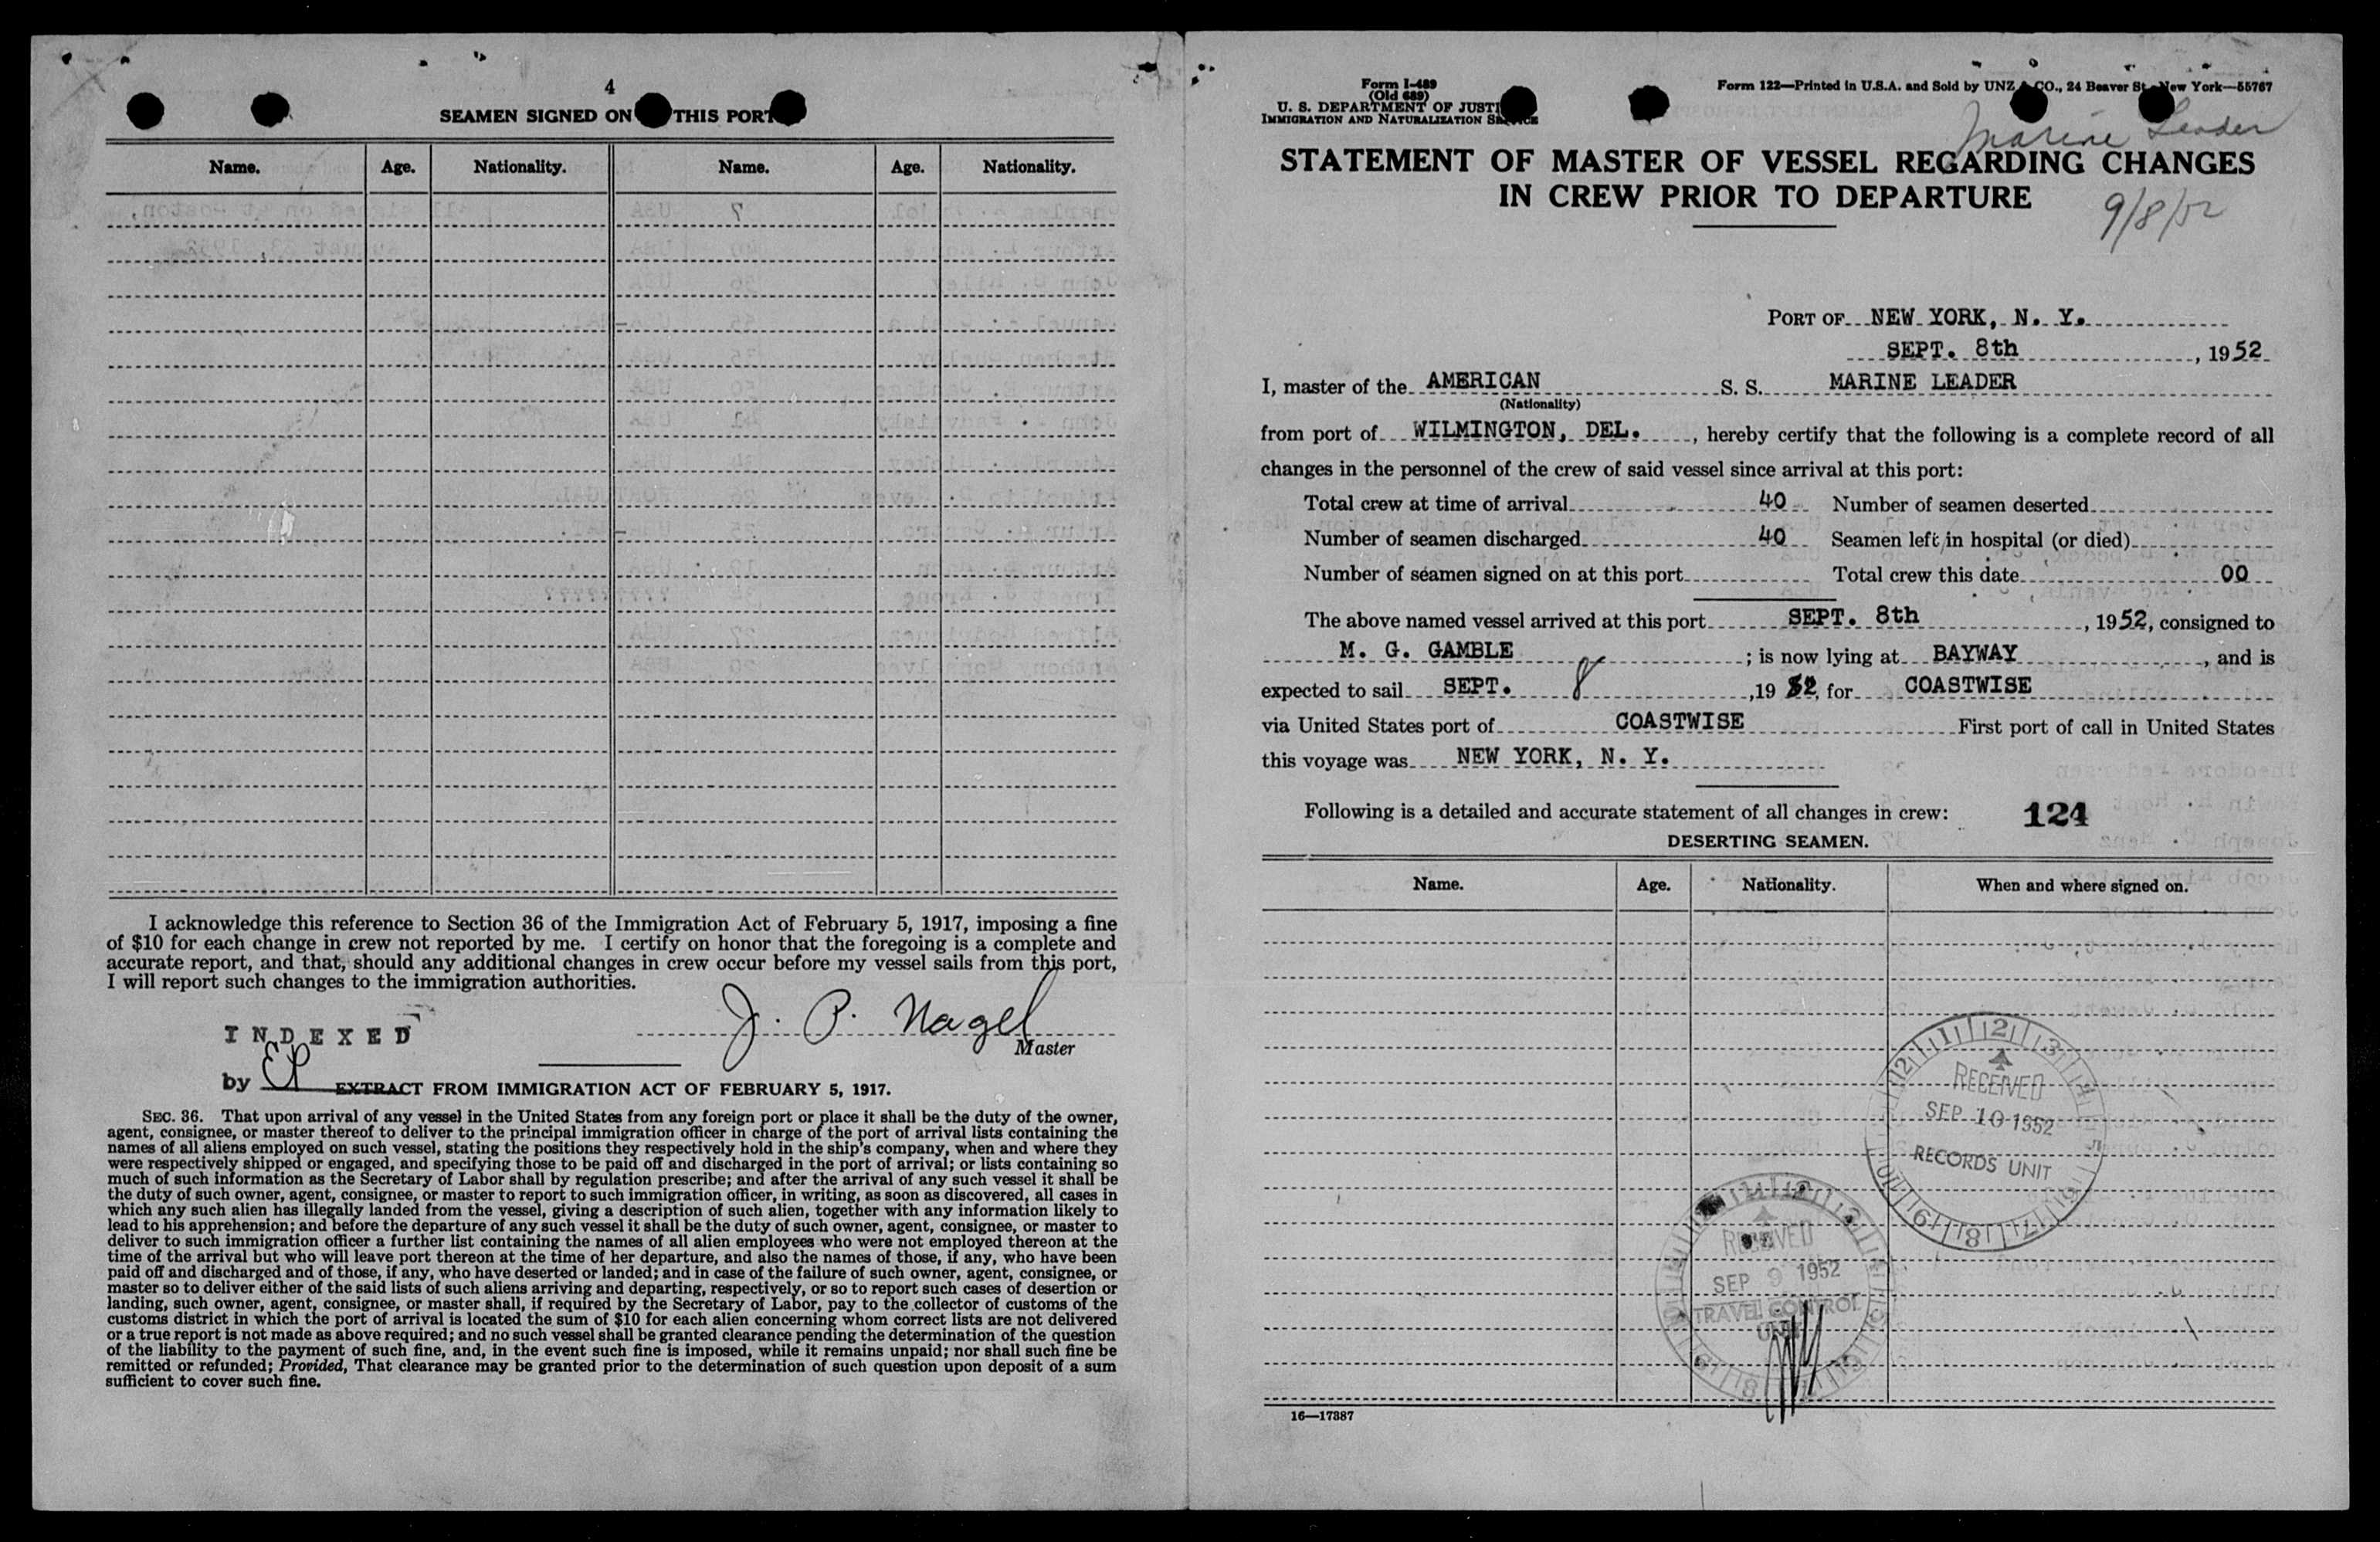 4
SEAMEN SIGNED ON THIS PORT
Name. Age. Nationality. Name. Age. Nationality.
I acknowledge this reference to Section 36 of the Immigration Act of February 5, 1917, imposing a fine
of $10 for each change in crew not reported by me. I certify on honor that the foregoing is a complete and
accurate report, and that, should any additional changes in crew occur before my vessel sails from this port,
I will report such changes to the immigration authorities.
J. P. Nagel
Master
INDEXED
by
EXTRACT FROM IMMIGRATION ACT OF FEBRUARY 5, 1917.
SEC. 36. That upon arrival of any vessel in the United States from any foreign port or place it shall be the duty of the owner,
agent, consignee, or master thereof to deliver to the principal immigration officer in charge of the port of arrival lists containing the
names of all aliens employed on such vessel, stating the positions they respectively hold in the ship's company, when and where they
were respectively shipped or engaged, and specifying those to be paid off and discharged in the port of arrival; or lists containing so
much of such information as the Secretary of Labor shall by regulation prescribe; and after the arrival of any such vessel it shall be
the duty of such owner, agent, consignee, or master to report to such immigration officer, in writing, as soon as discovered, all cases in
which any such alien has illegally landed from the vessel, giving a description of such alien, together with any information likely to
lead to his apprehension; and before the departure of any such vessel it shall be the duty of such owner, agent, consignee, or master to
deliver to such immigration officer a further list containing the names of all alien employees who were not employed thereon at the
time of the arrival but who will leave port thereon at the time of her departure, and also the names of those, if any, who have been
paid off and discharged and of those, if any, who have deserted or landed; and in case of the failure of such owner, agent, consignee, or
master so to deliver either of the said lists of such aliens arriving and departing, respectively, or so to report such cases of desertion or
landing, such owner, agent, consignee, or master shall, if required by the Secretary of Labor, pay to the collector of customs of the
customs district in which the port of arrival is located the sum of $10 for each alien concerning whom correct lists are not delivered
or a true report is not made as above required; and no such vessel shall be granted clearance pending the determination of the question
of the liability to the payment of such fine, and, in the event such fine is imposed, while it remains unpaid; nor shall such fine be
remitted or refunded; Provided, That clearance may be granted prior to the determination of such question upon deposit of a sum
sufficient to cover such fine.
Form I-489
(Old 689)
U. S. DEPARTMENT OF JUSTI
IMMIGRATION AND NATURALIZATION SERVICE
Form 122—Printed in U.S.A. and Sold by UNZ & CO., 24 Beaver St., New York—55767
Marine Leader
STATEMENT OF MASTER OF VESSEL REGARDING CHANGES
IN CREW PRIOR TO DEPARTURE
9/8/52
PORT OF NEW YORK, N. Y.
SEPT. 8th, 1952
I, master of the AMERICAN S. S. MARINE LEADER
(Nationality)
from port of WILMINGTON, DEL., hereby certify that the following is a complete record of all
changes in the personnel of the crew of said vessel since arrival at this port:
Total crew at time of arrival 40 Number of seamen deserted
Number of seamen discharged 40 Seamen left in hospital (or died)
Number of seamen signed on at this port Total crew this date 00
The above named vessel arrived at this port SEPT. 8th, 1952, consigned to
M. G. GAMBLE; is now lying at BAYWAY, and is
expected to sail SEPT. 8, 1952, for COASTWISE
via United States port of COASTWISE First port of call in United States
this voyage was NEW YORK, N. Y.
Following is a detailed and accurate statement of all changes in crew: 124
DESERTING SEAMEN.
Name. Age. Nationality. When and where signed on.
RECEIVED
SEP 10 1952
RECORDS UNIT
RECEIVED
SEP 9 1952
TRAVEL CONTROL
UNIT
16—17887